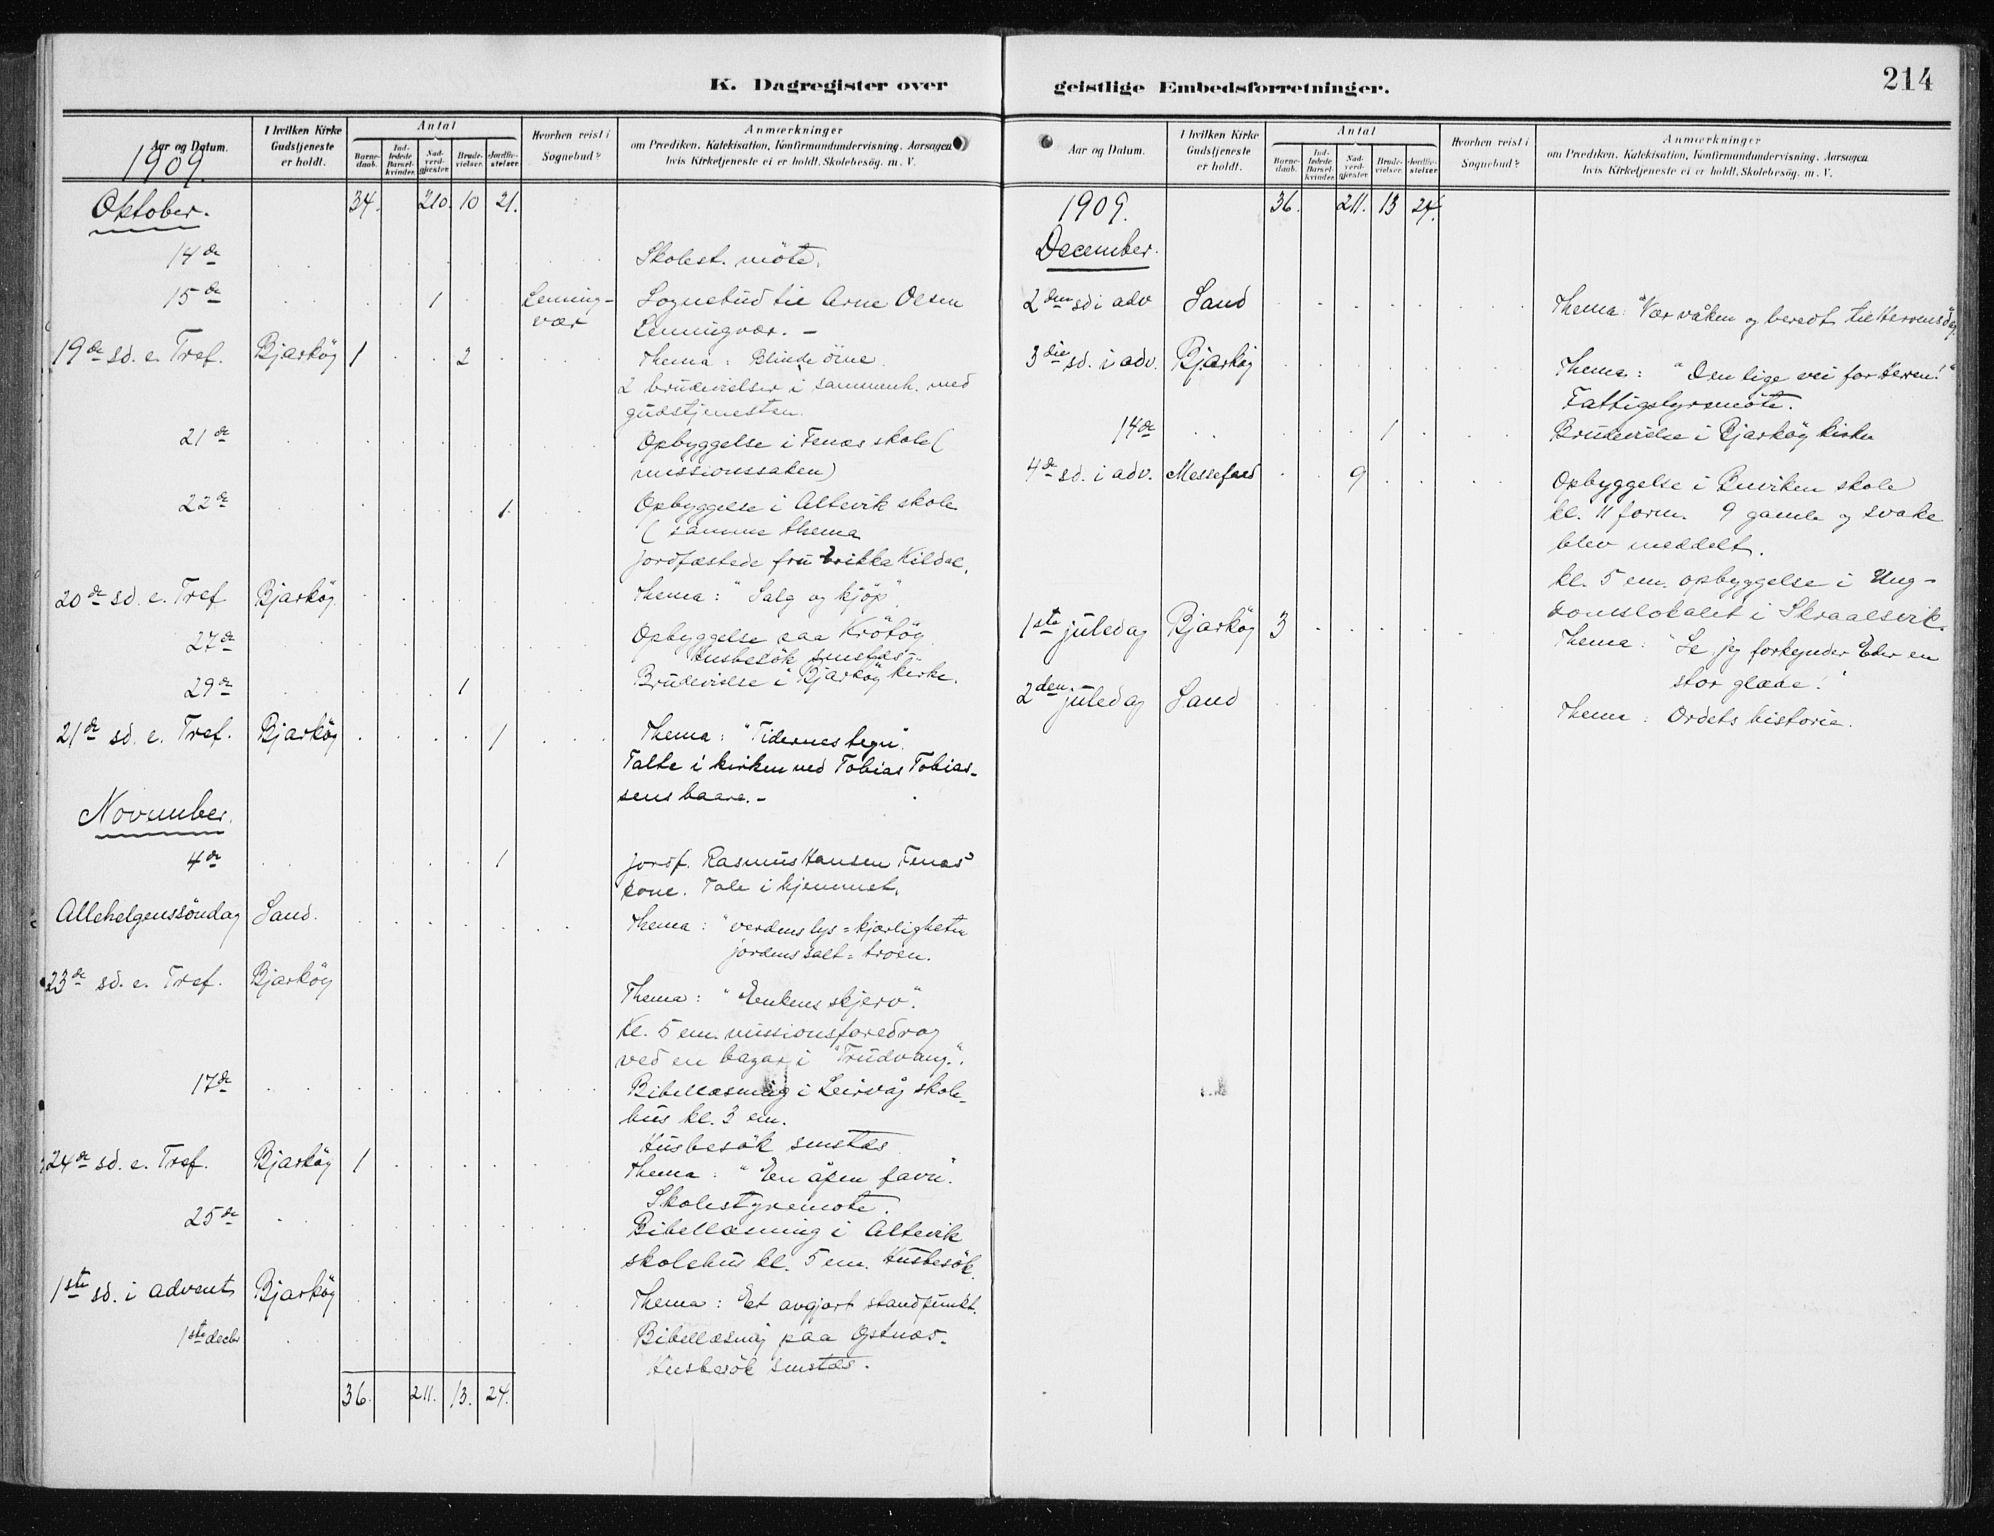 K. Dagregister over
Aar og Datum.
1909.
I hvilken Kirke Gudstjeneste er holdt.
Antal
Barnedaab.
Indledede Barselkvinder.
Nadverdgjester.
Brudevielser.
Jordfæstelser.
Hvorhen reist i Sognebud?
Anmærkninger
om Prædiken, Katekisation, Konfirmandundervisning. Aarsagen
hvis Kirketjeneste ei er holdt, Skolebesøg. m. V.
Oktober. 34. 210. 10 21.
14de Skolest. möte.
15de 1 Lenning-vær Sognebud til Arne Olsen
Lenningvær. –
19de sd. e. Tref. Bjarköy 1 2 Thema: Blinde öine
2 brudevielser i sammenh. med
gudstjenesten.
21de Opbyggelse i Fenes skole (
missionssaken)
22de 1. Opbyggelse i Altevik skole
(samme thema
jordfæstede fru Erikka Kildal.
20de sd. e. Tref Bjarköy. Thema: "Salg og kjöp".
27de Opbyggelse paa Krötöy
Husbesök smstds
29de 1 Brudevielse i Bjarköy kirke.
21de sd. e. Tref. Bjarköy 1 Thema: "Tidernes tegn".
Talte i kirken ved Tobias Tobias-
sens baare. –
November.
4de 1 jordf. Rasmus Hansen Fenes'
kone. Tale i hjemmet.
Allehelgenssöndag Sand. Thema: "verdens lys = kjærligheten
jordens salt = troen.
23de sd. e. Tref. Bjarköy
Thema: "Enkens skjerv".
Kl. 5 em. missionsforedrag
ved en bazar i "Trudvang".
17de Bibellæsning i Leirvåg skole-
hus kl. 3 em.
Husbesök smstds
24de sd. e. Tref. Bjarköy 1 Thema: "En åpen favn".
Skolestyremöte.
25de Bibellæsning i Altevik
skolehus kl. 5 em. Husbesök.
1ste sd. i advent Bjarköy Thema: Et avgjort standpunkt.
1ste decbr Bibellæsning paa Østnes-
Husbesök smstds.
36. 211. 13. 24.
geistlige Embedsforretninger.
214
Aar og Datum.
I hvilken Kirke Gudstjeneste er holdt.
Antal
Barnedaab.
Indledede Barselkvinder.
Nadverdgjester.
Brudevielser.
Jordfæstelser.
Hvorhen reist i Sognebud?
Anmærkninger
om Prædiken, Katekisation, Konfirmandundervisning. Aarsagen
hvis Kirketjeneste ei er holdt, Skolebesøg. m. V.
1909. 36. 211. 13 24.
December.
2den sd i adv Sand Thema: "Vær våken og beredt til Herrens dag
3die sd. i adv. Bjarköy Thema: "Den lige vei for Herren!"
Fattigstyremöte.
14de 1 Brudevielse i Bjarköy kirke
4de sd. i adv. Messefald 9 Opbyggelse i Buviken skole
kl. 11 form. 9 gamle og svake
blev meddelt.
kl. 5 em. opbyggelse i Ung-
domslokalet i Skraalsvik.
1ste juledag Bjarköy 3 Thema: "Se, jeg forkynder Eder en
stor glæde!"
2den juledag Sand Thema: Ordets historie.